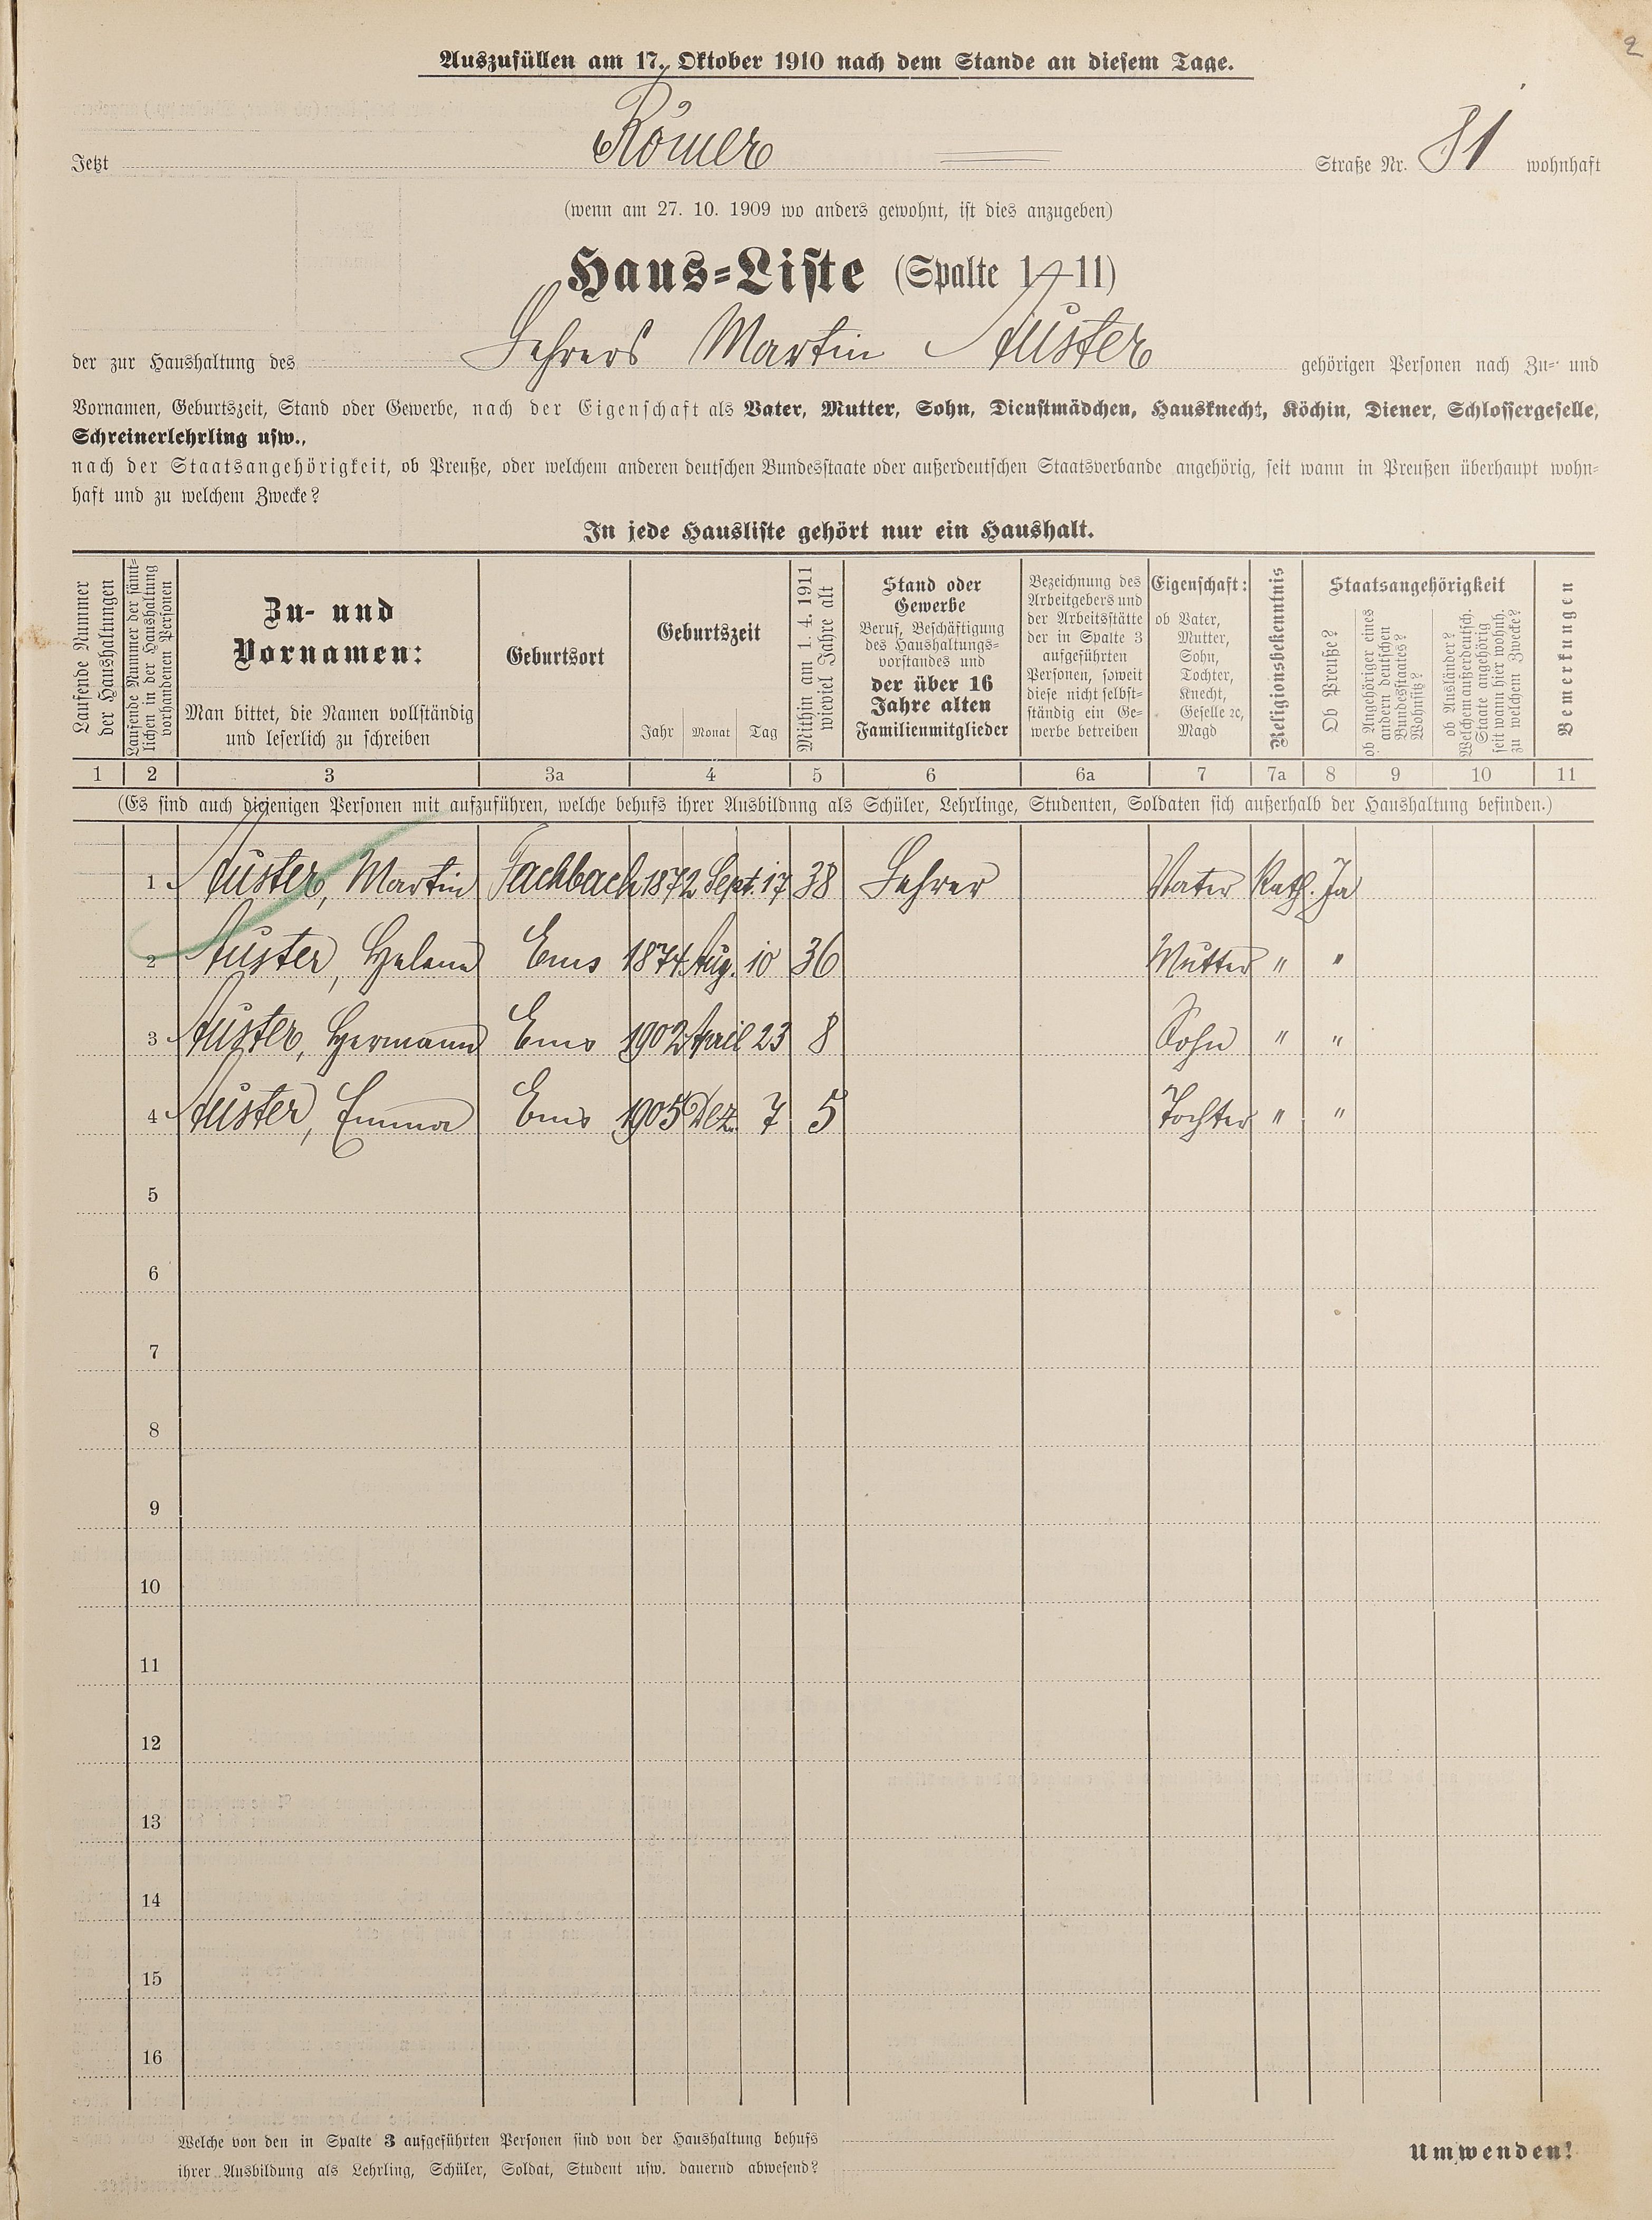 2
Auszufüllen am 17. Oktober 1910 nach dem Stande an diesem Tage.
Jetzt Römer Straße Nr. 81 wohnhaft
(wenn am 27. 10. 1909 wo anders gewohnt, ist dies anzugeben)
Haus-Liste (Spalte 1–11)
der zur Haushaltung des Lehrers Martin Auster gehörigen Personen nach Zu- und
Vornamen, Geburtszeit, Stand oder Gewerbe, nach der Eigenschaft als Vater, Mutter, Sohn, Dienstmädchen, Hausknecht, Köchin, Diener, Schlossergeselle,
Schreinerlehrling usw.,
nach der Staatsangehörigkeit, ob Preuße, oder welchem anderen deutschen Bundesstaate oder außerdeutschen Staatsverbande angehörig, seit wann in Preußen überhaupt wohn-
haft und zu welchem Zwecke?
In jede Hausliste gehört nur ein Haushalt.
Laufende Nummer
der Haushaltungen
Laufende Nummer der sämt-
lichen in der Haushaltung
vorhandenen Personen
Zu- und
Vornamen:
Man bittet, die Namen vollständig
und leserlich zu schreiben
Geburtsort
Geburtszeit
Jahr Monat Tag
Mithin am 1. 4. 1911
wieviel Jahre alt
Stand oder
Gewerbe
Beruf, Beschäftigung
des Haushaltungs-
vorstandes und
der über 16
Jahre alten
Familienmitglieder
Bezeichnung des
Arbeitgebers und
der Arbeitsstätte
der in Spalte 3
aufgeführten
Personen, soweit
diese nicht selbst-
ständig ein Ge-
werbe betreiben
Eigenschaft:
ob Vater,
Mutter,
Sohn,
Tochter,
Knecht,
Geselle ꝛc,
Magd
Religionsbekenntnis
Staatsangehörigkeit
Ob Preuße?
ob Angehöriger eines
andern deutschen
Bundesstaates?
Wohnsitz?
ob Ausländer?
Welchem außerdeutsch.
Staate angehörig
seit wann hier wohnh.
zu welchem Zwecke?
Bemerkungen
1 2 3 3a 4 5 6 6a 7 7a 8 9 10 11
(Es sind auch diejenigen Personen mit aufzuführen, welche behufs ihrer Ausbildung als Schüler, Lehrlinge, Studenten, Soldaten sich außerhalb der Haushaltung befinden.)
1 Auster, Martin Fachbach 1872 Sept. 17 38 Lehrer Vater Kath. Ja
2 Auster, Helene Ems 1874 Aug. 10 36 Mutter " "
3 Auster, Hermann Ems 1902 April 23 8 Sohn " "
4 Auster, Emma Ems 1905 Dez. 7 5 Tochter " "
5
6
7
8
9
10
11
12
13
14
15
16
Welche von den in Spalte 3 aufgeführten Personen sind von der Haushaltung behufs
ihrer Ausbildung als Lehrling, Schüler, Soldat, Student usw. dauernd abwesend?
Umwenden!